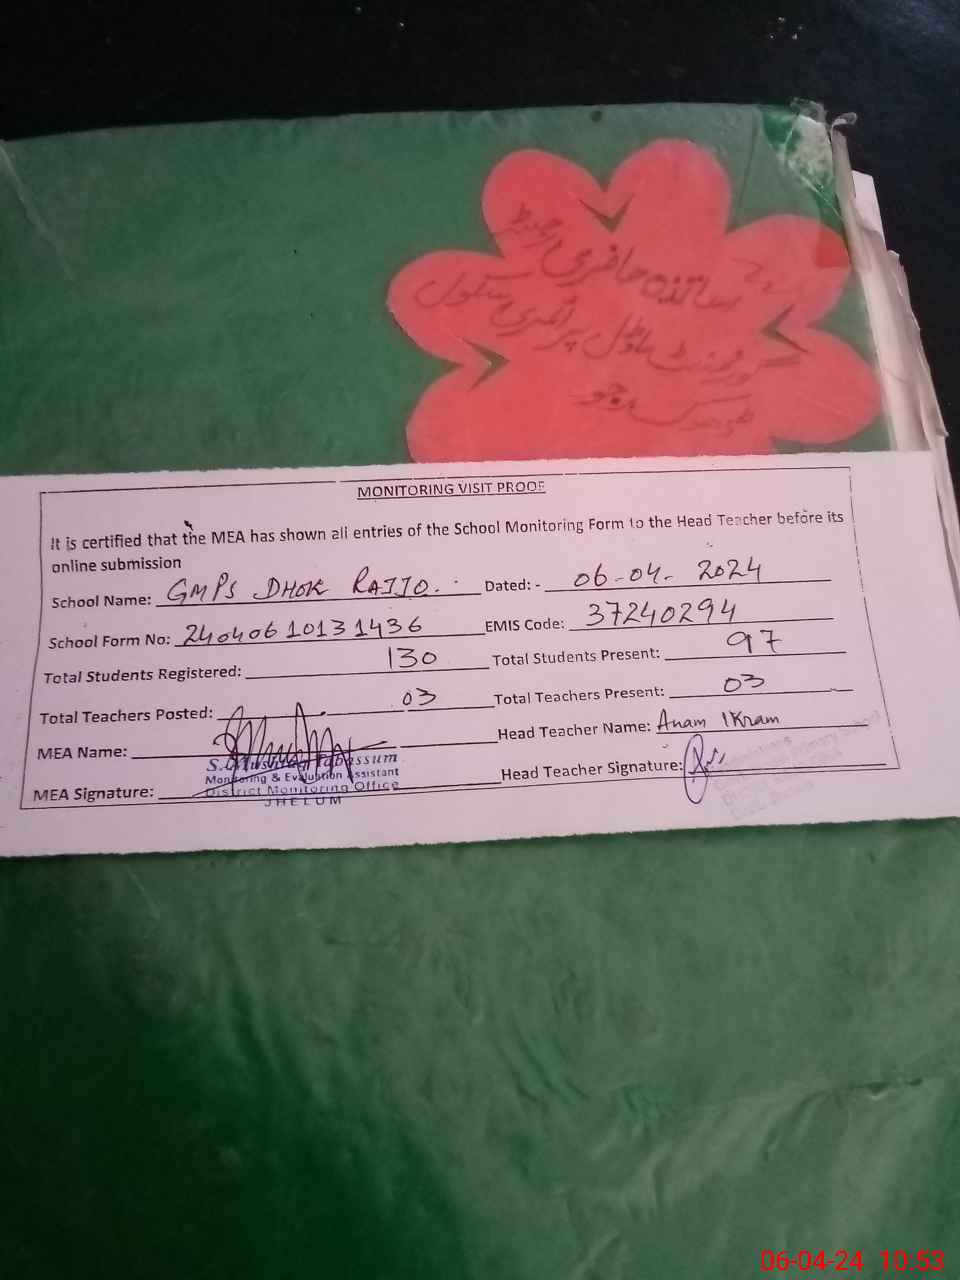 اساتذہ حاضری رجسٹر
گورنمنٹ ماڈل پرائمری سکول
ڈھوک راجو
MONITORING VISIT PROOF
It is certified that the MEA has shown all entries of the School Monitoring Form to the Head Teacher before its
online submission
School Name: GMPS DHOK RAJJO. Dated: - 06-04-2024
School Form No: 24040610131436 EMIS Code: 37240294
Total Students Registered: 130 Total Students Present: 97
Total Teachers Posted: 03 Total Teachers Present: 03
MEA Name: Head Teacher Name: Anam Ikram
Tabassum
Monitoring & Evaluation Assistant
District Monitoring Office
JHELUM
MEA Signature: Head Teacher Signature:
06-04-24 10:53